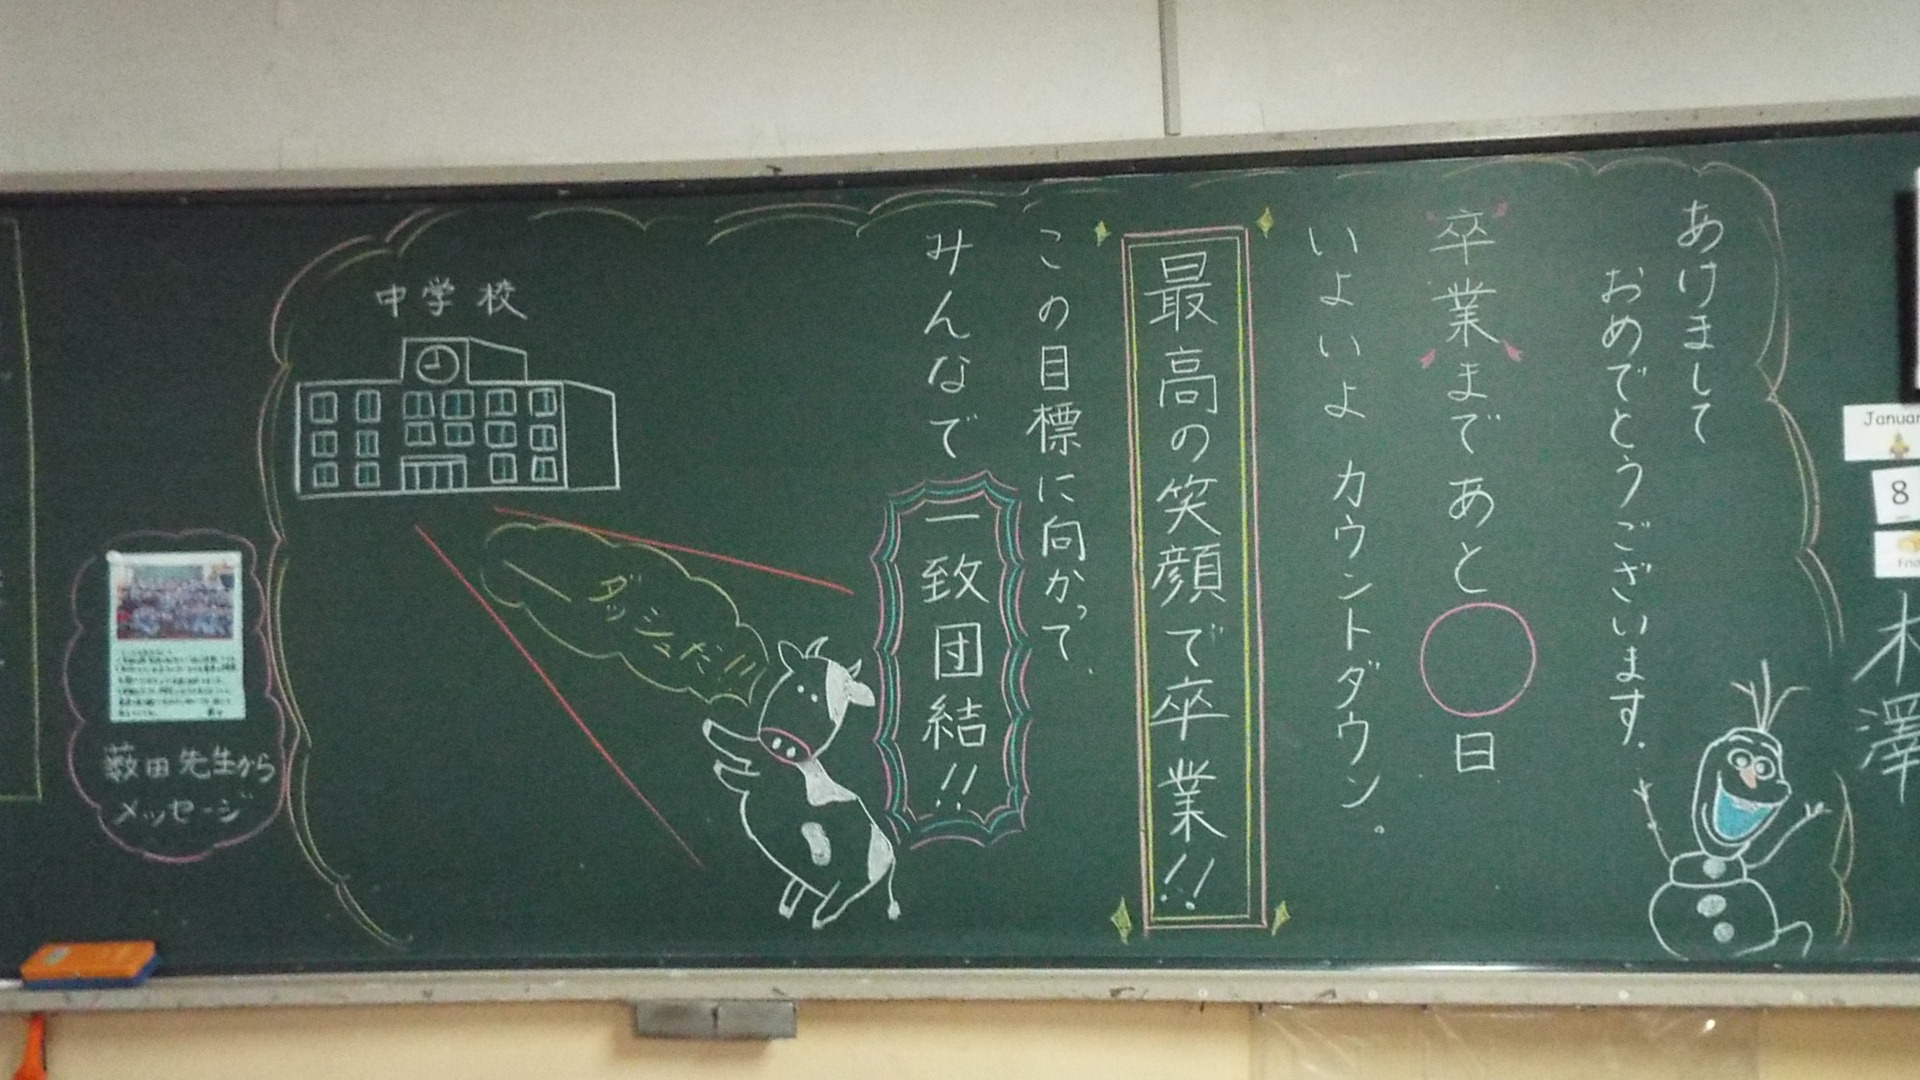 あけまして
おめでとうございます。
卒業まであと
日
いよいよ カウントダウン。
最高の笑顔で卒業!!
この目標に向かって、
みんなで
一致団結!!
ダッシュだ!!
中学校
薮田先生から
メッセージ
Januar
8
Frid
木澤